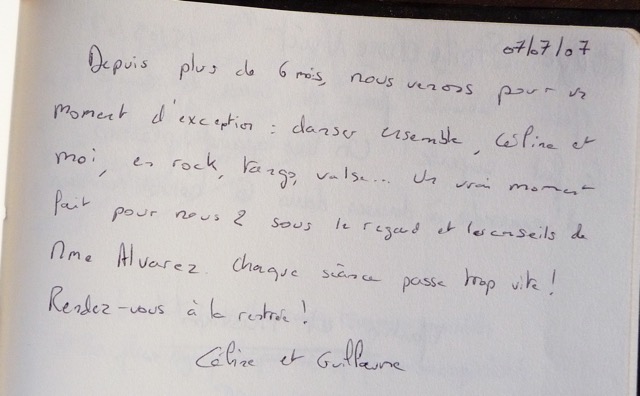 07/07/07
Depuis plus de 6 mois, nous venons pour un
moment d'exception : danser ensemble, Céline et
moi, en rock, tango, valse... Un vrai moment
fait pour nous 2 sous le regard et les conseils de
Mme Alvarez. Chaque séance passe trop vite !
Rendez-vous à la rentrée !
Céline et Guillaume